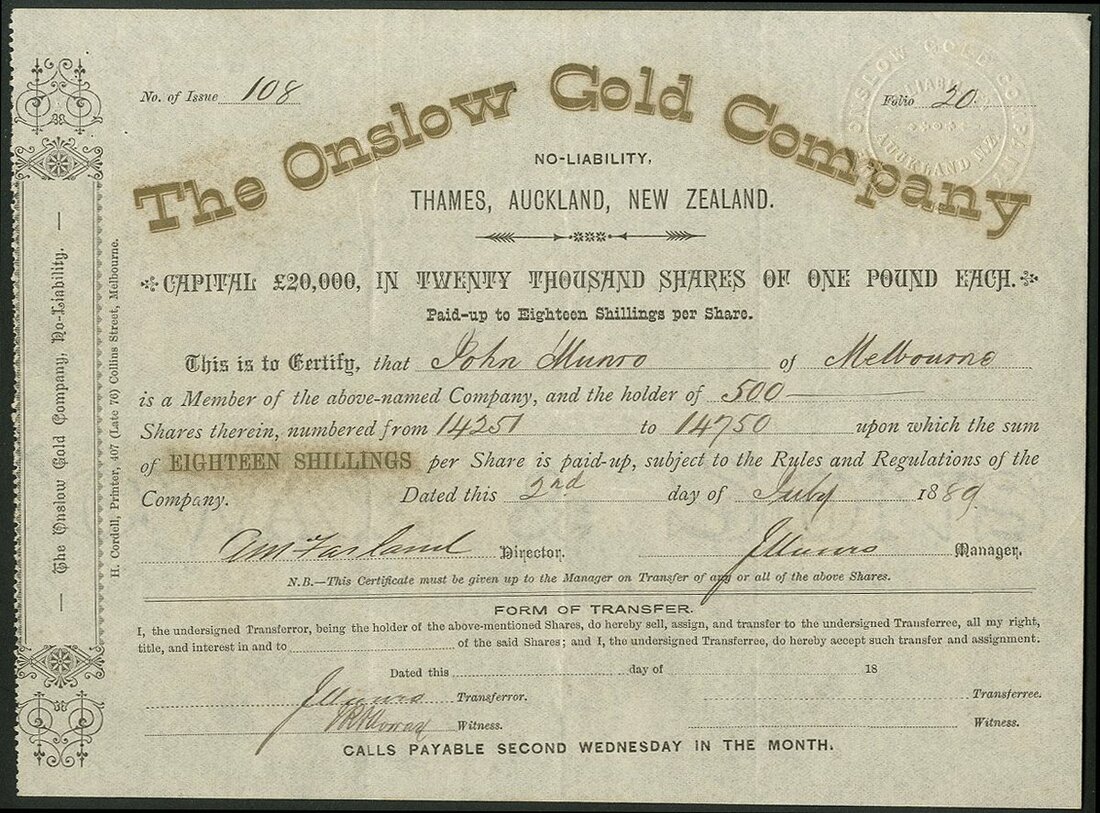 No. of Issue 108
Folio 20
ONSLOW GOLD COMPANY
AUCKLAND N.Z.
The Onslow Gold Company
NO-LIABILITY,
THAMES, AUCKLAND, NEW ZEALAND.
CAPITAL £20,000, IN TWENTY THOUSAND SHARES OF ONE POUND EACH.
Paid-up to Eighteen Shillings per Share.
This is to Certify, that John Munro of Melbourne
is a Member of the above-named Company, and the holder of 500
Shares therein, numbered from 14251 to 14750 upon which the sum
of EIGHTEEN SHILLINGS per Share is paid-up, subject to the Rules and Regulations of the
Company. Dated this 2nd day of July 1889
Director. JMunro Manager.
N.B.—This Certificate must be given up to the Manager on Transfer of any or all of the above Shares.
FORM OF TRANSFER.
I, the undersigned Transferror, being the holder of the above-mentioned Shares, do hereby sell, assign, and transfer to the undersigned Transferree, all my right,
title, and interest in and to of the said Shares; and I, the undersigned Transferree, do hereby accept such transfer and assignment.
Dated this day of 18
JMunro Transferror. Transferree.
Witness. Witness.
CALLS PAYABLE SECOND WEDNESDAY IN THE MONTH.
— The Onslow Gold Company, No-Liability. —
H. Cordell, Printer, 407 (Late 76) Collins Street, Melbourne.